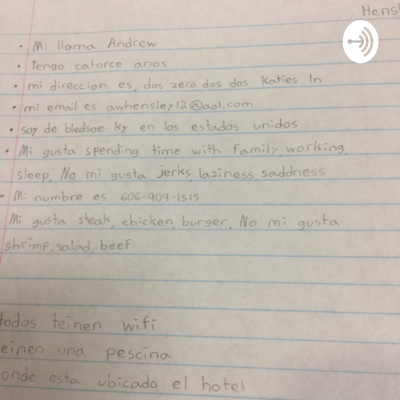 • Mi llama Andrew
• Tengo catorce anos
• mi direccion es, dos zero dos dos katies ln
• mi email es awhensley12@aol.com
• soy de bledsoe ky en los estados unidos
• Mi gusta spending time with family, working,
sleep, No mi gusta jerks, laziness, saddness
• Mi numbre es 606-909-1515
Mi gusta steak, chicken, burger, No mi gusta
shrimp, salad, beef
todos teinen wifi
einen una pescina
onde esta ubicado el hotel